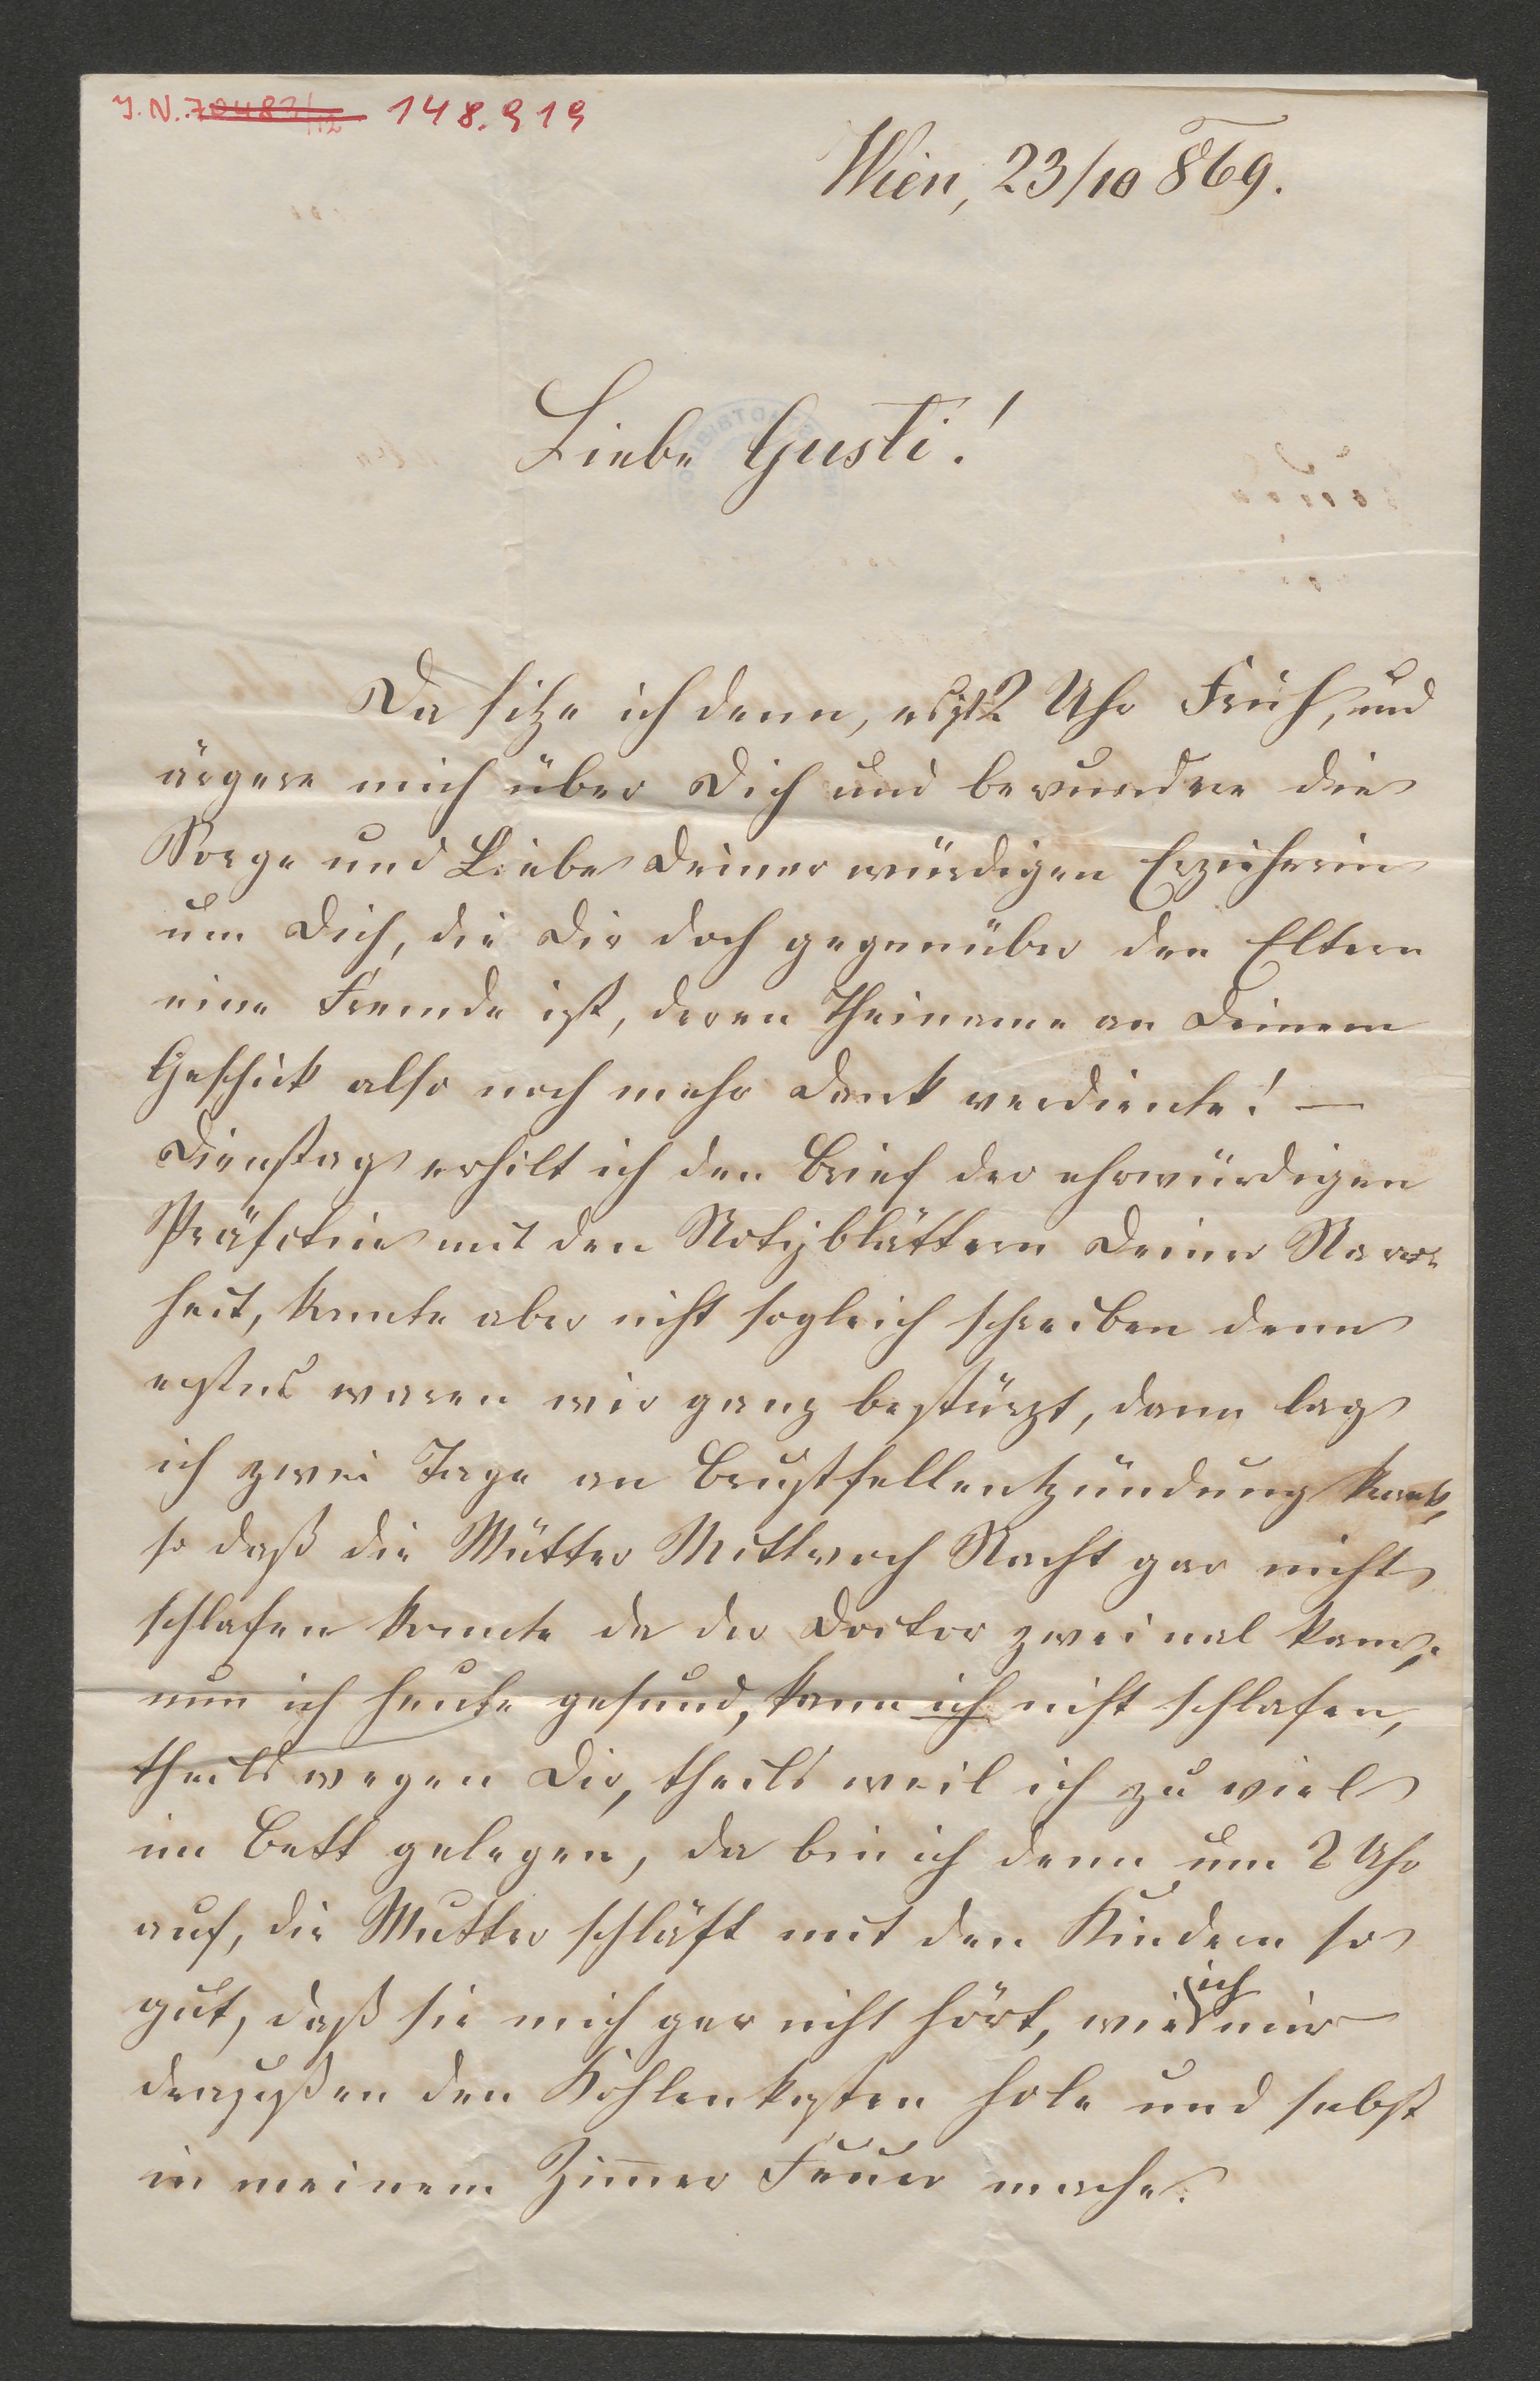 J. N. 70487/12 148.919
Wien, 23/10 869.
Liebe Gusti!
Da sitze ich denn, es ist 2 Uhr Früh, und
ärgere mich über Dich und bewundere die
Sorge und Liebe Deiner würdigen Erzieherin
um Dich, die Dir doch gegenüber den Eltern
eine Fremde ist, deren Theiname an Deinem
Geschick also noch mehr Dank verdiente! —
Dienstag erhilt ich den Brief der ehrwürdigen
Präfektin mit den Notizblättern Deiner Narr-
heit, konnte aber nicht sogleich schreiben denn
erstens waren wir ganz bestürzt, dann lag
ich zwei Tage an Brustfellentzündung krank,
so daß die Mutter Mittwoch Nacht gar nicht
schlafen konnte da der Doctor zwei mal kam,
nun ich heute gesund, kann ich nicht schlafen,
theils wegen Dir, theils weil ich zu viel
im Bett gelegen, da bin ich denn um 2 Uhr
auf, die Mutter schläft mit den Kindern so
gut, daß sie mich gar nicht hört, wie ich mir
draußen den Kohlenkasten hole und selbst
in meinem Zimmer Feuer mache.